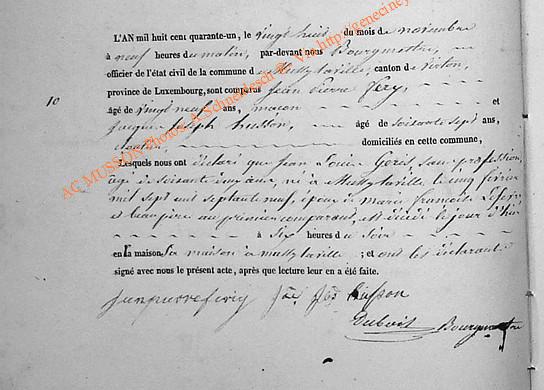 L'AN mil huit cent quarante-un, le vingt huit du mois de novembre
à neuf heures du matin, par-devant nous Bourgmestre,
officier de l'état civil de la commune de Mussylaville, canton de Virton,
province de Luxembourg, sont comparus Jean Pierre Féry,
10
âgé de vingt neuf ans, maçon et
Jacques Joseph Husson, âgé de soixante sept ans,
domiciliés en cette commune,
Lesquels nous ont déclaré que Jean Louis Goris sans profession,
âgé de soixante ans, né à Mussylaville le cinq février
mil sept cent septante neuf, époux à Marie Françoise
et beau père au premier comparant, est décédé le jour d'hier
à six heures du soir
en la maison sa maison à mussylaville ; et ont les déclarants
signé avec nous le présent acte, après que lecture leur en a été faite.
jean pierre fery Jos Husson
Dubois Bourgmestre
AC MUSSON Photos A.Schneidesch @ Via http://geneciney